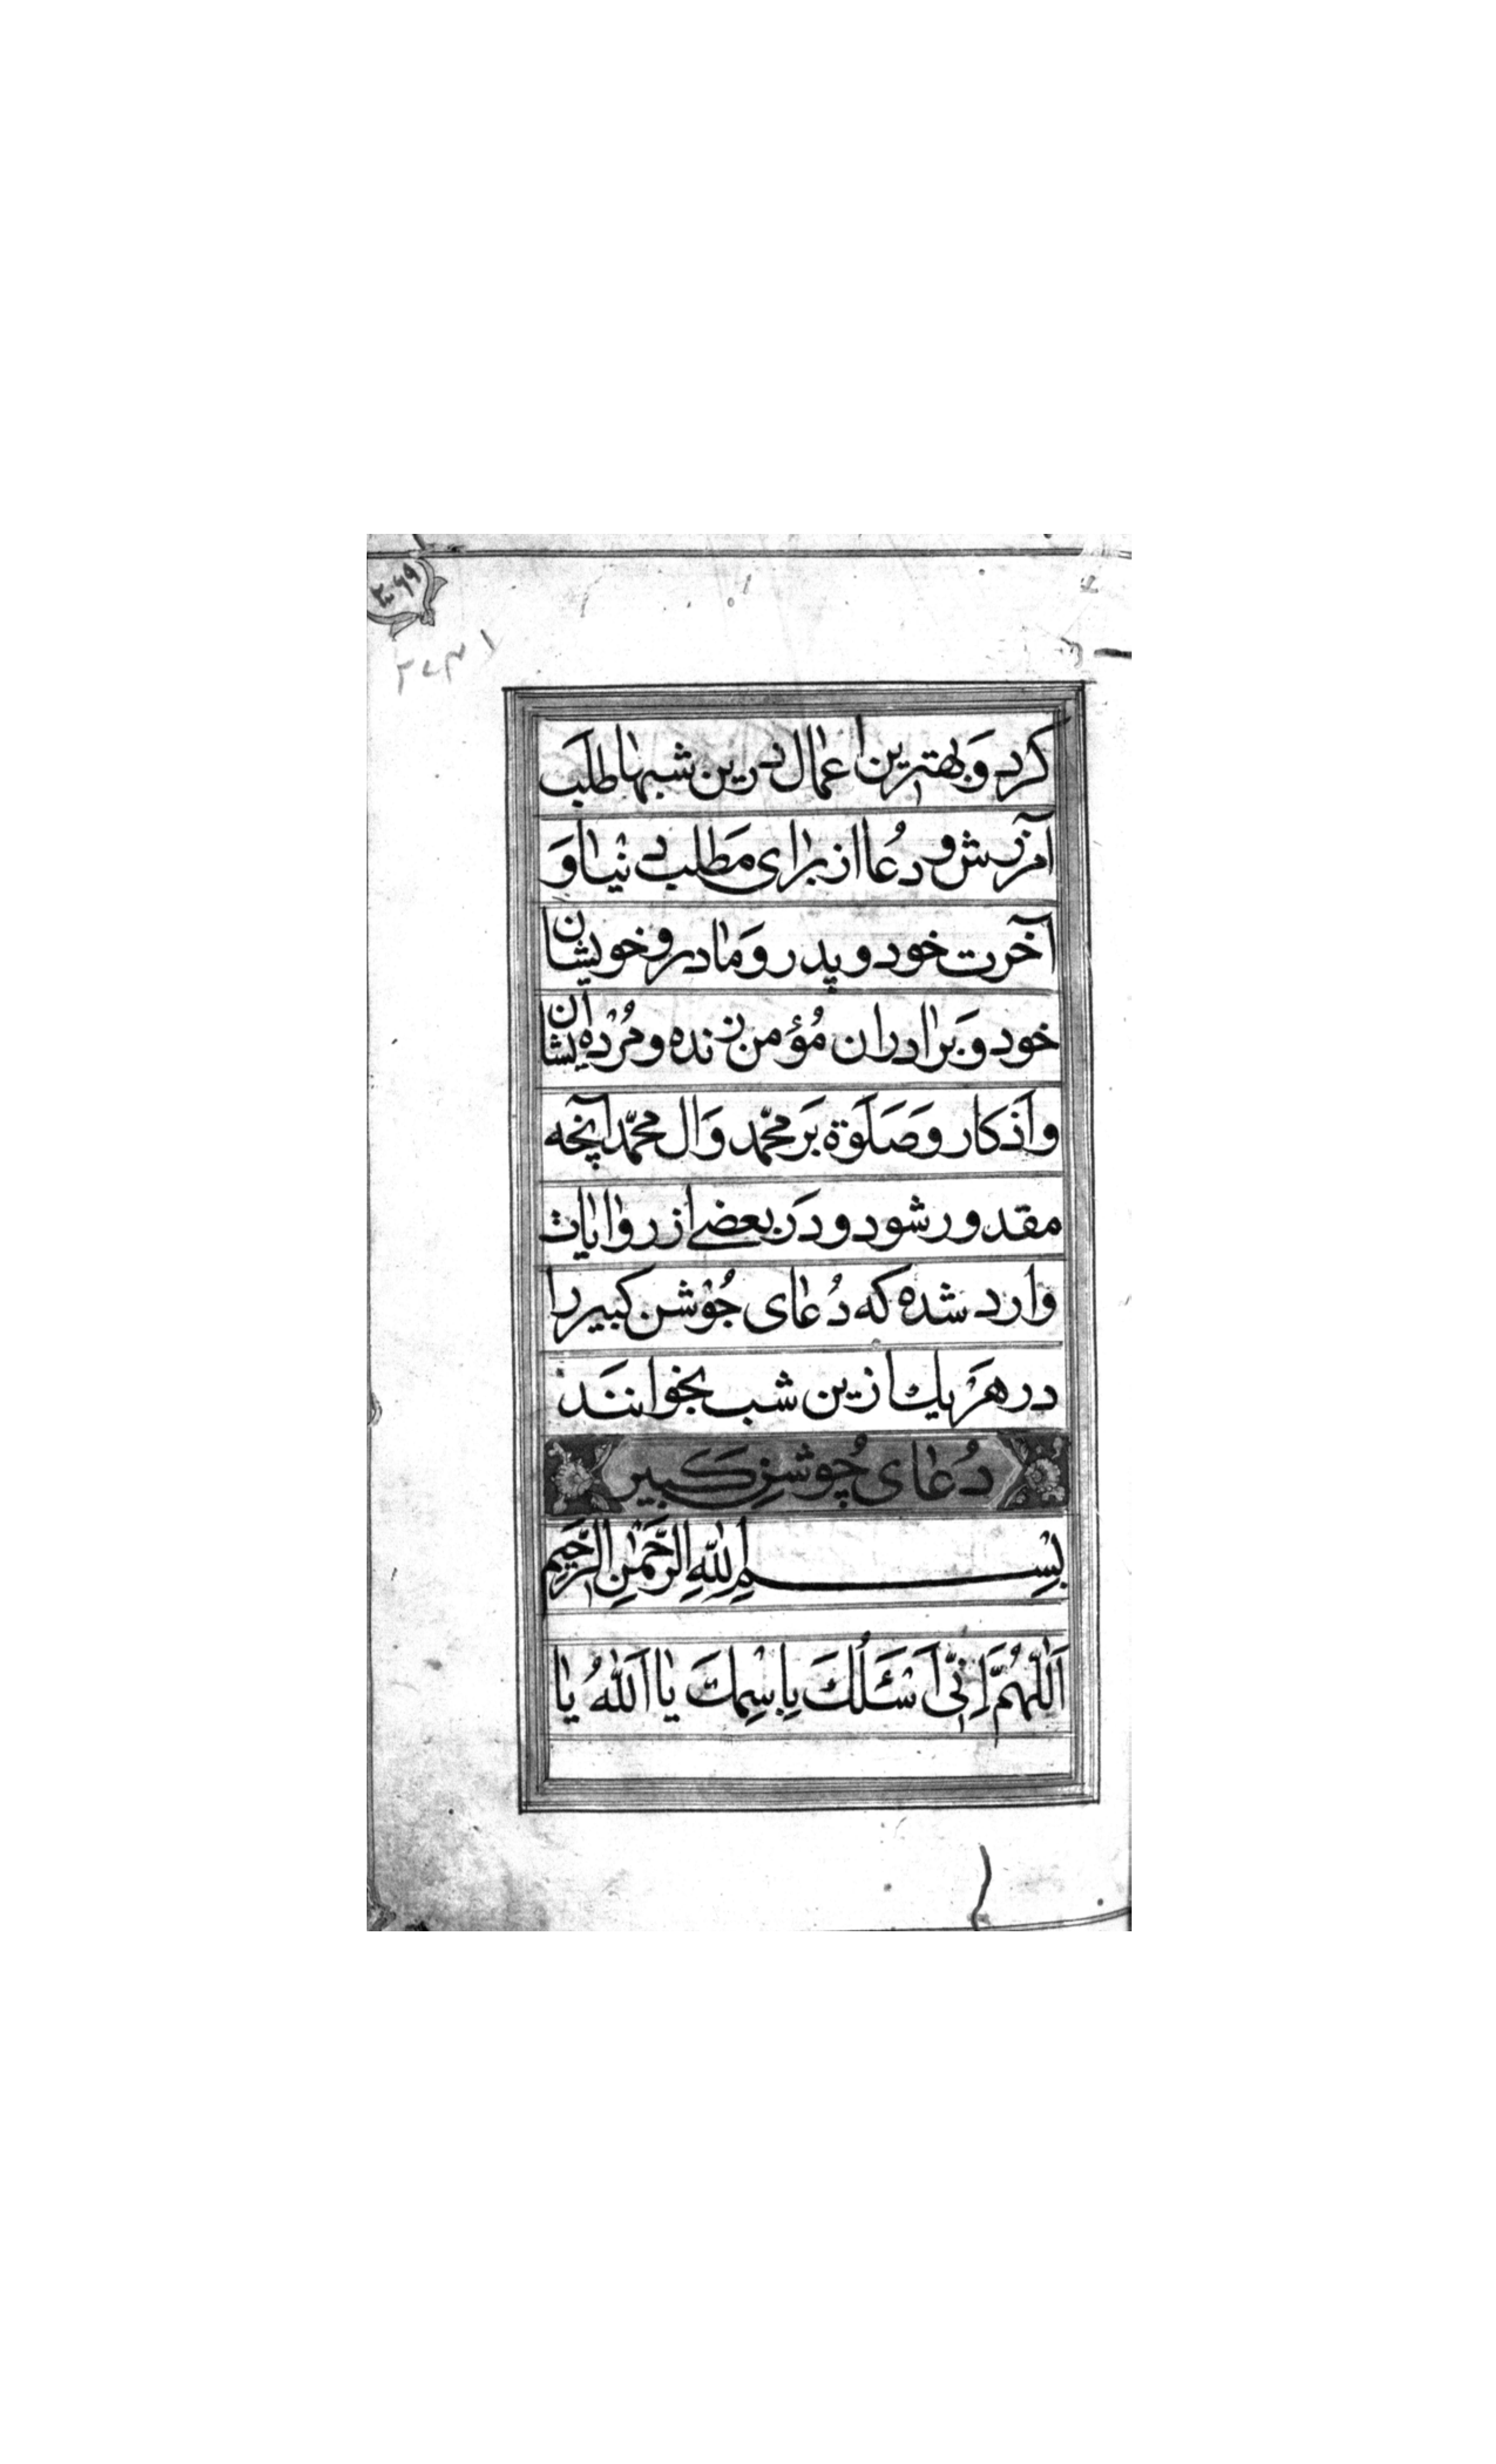 کرد و بهترین اعمال درین شبها طلب
آمرزش و دعا از برای مطلب دنیا و
آخرت خود و پدر و مادر و خویشان
خود و برادران مؤمن زنده و مرده ایشان
و اذکار و صلوة بر محمّد و ال محمّد آنچه
مقدور شود و در بعضے از روایات
وارد شده که دُعای جُوْشن کبیر را
در هَر یك ازین شب بخوانَند
دُعای جُوشنِ کَبیر
بِسْمِ اللّٰهِ الرَّحْمٰنِ الرَّحیمِ
اَللّٰهُمَّ اِنّی اَسْئَلُكَ بِاسْمِكَ یا اَللّٰهُ یا